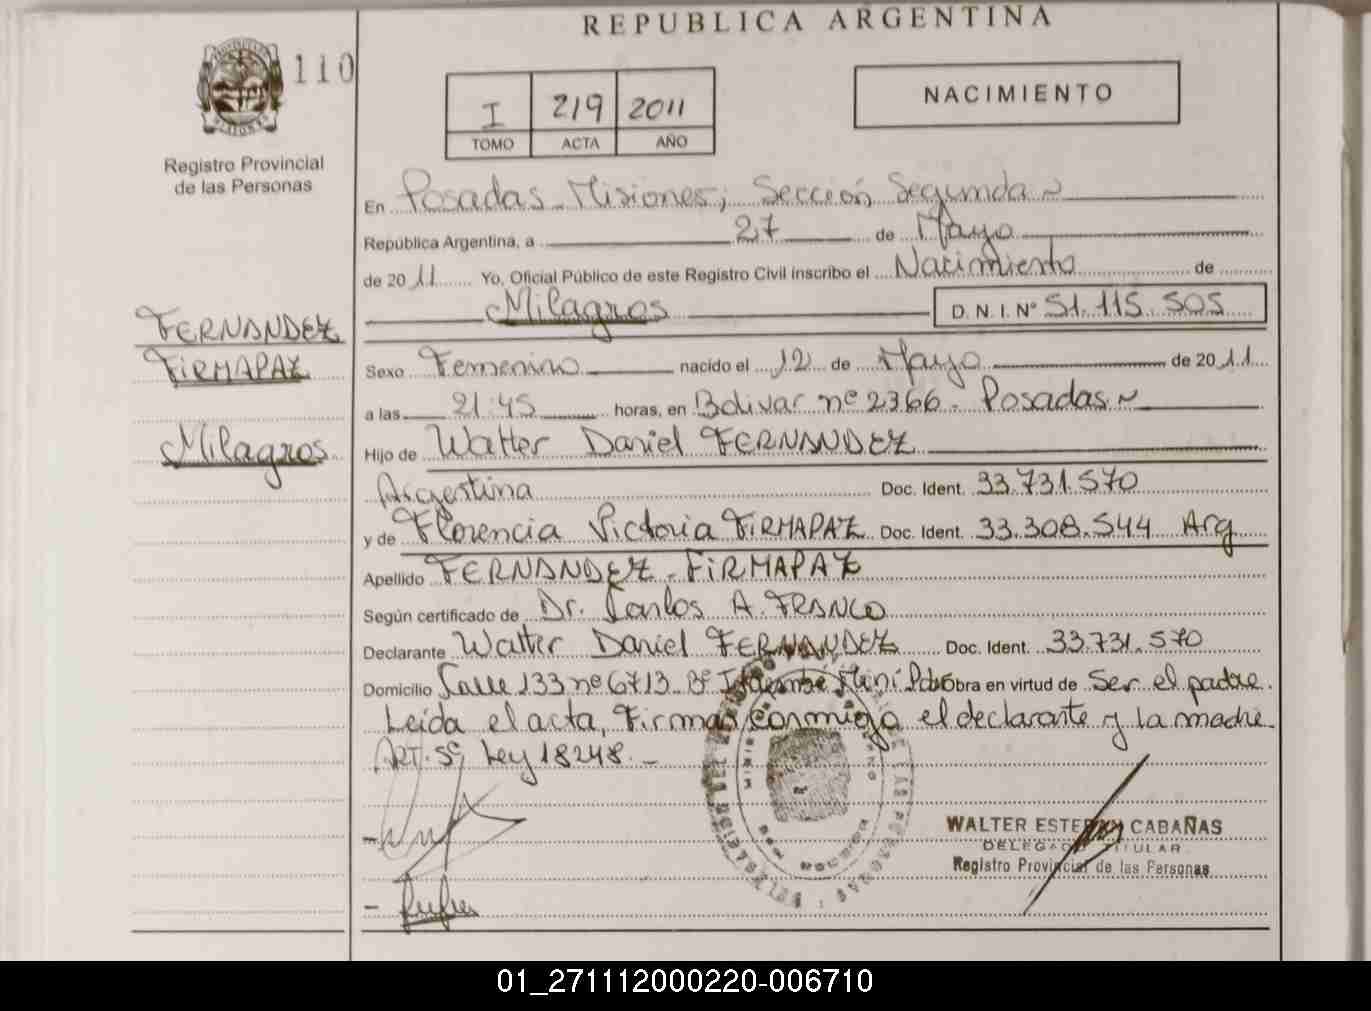 REPUBLICA ARGENTINA
110
I 219 2011
TOMO ACTA AÑO
NACIMIENTO
Registro Provincial
de las Personas
En Posadas - Misiones; Sección Segunda
República Argentina, a 27 de Mayo
de 2011 Yo, Oficial Público de este Registro Civil inscribo el Nacimiento de
Milagros D.N.I. Nº 51.115.505
FERNANDEZ
FIRMAPAZ
Milagros
Sexo Femenino nacido el 12 de Mayo de 2011
a las 21:45 horas, en Bolivar nº 2366 - Posadas
Hijo de Walter Daniel FERNANDEZ
Argentina Doc. Ident. 33.731.570
y de Florencia Victoria FIRMAPAZ Doc. Ident. 33.308.544 Arg
Apellido FERNANDEZ - FIRMAPAZ
Según certificado de Dr. Carlos A. FRANCO
Declarante Walter Daniel FERNANDEZ Doc. Ident. 33.731.570
Domicilio Calle 133 nº 6713 Bº Obra en virtud de Ser el padre.
Leida el acta, Firman conmigo el declarante y la madre
ART. 5º, Ley 18248. -
WALTER ESTEBAN CABAÑAS
DELEGADO TITULAR
Registro Provincial de las Personas
01_271112000220-006710